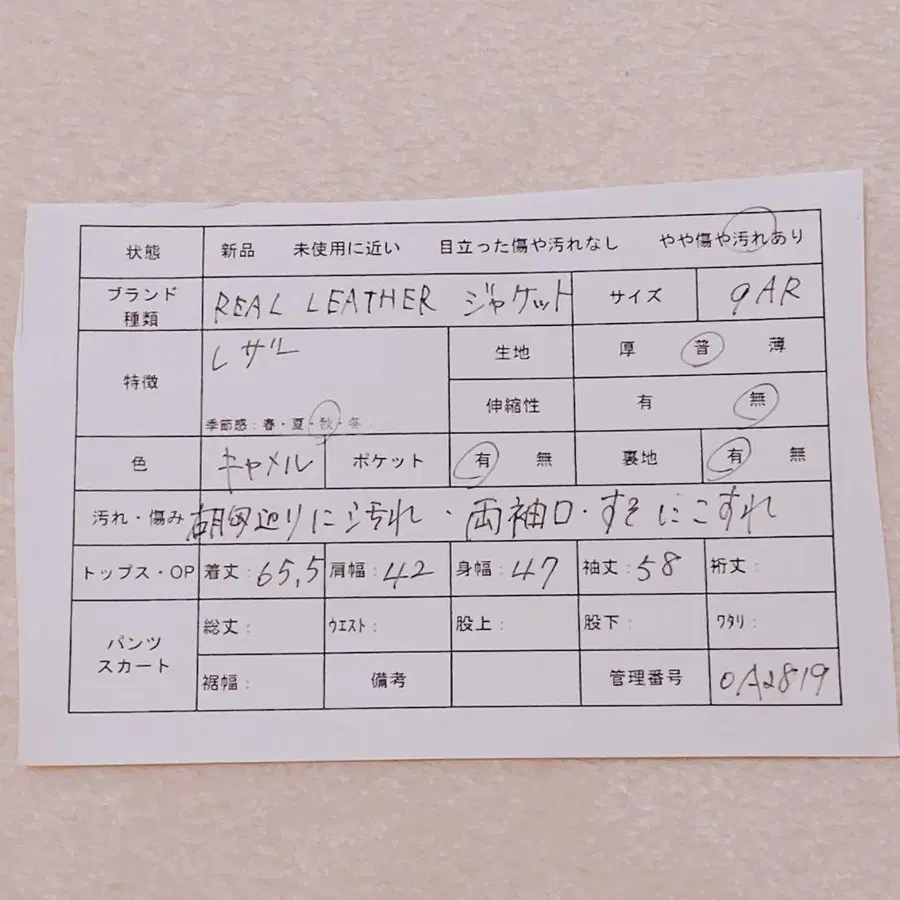 状態 新品 未使用に近い 目立った傷や汚れなし やや傷や汚れあり
ブランド 種類 REAL LEATHER ジャケット サイズ 9AR
特徴 レザー 生地 厚 普 薄
季節感:春・夏・秋・冬 伸縮性 有 無
色 キャメル ポケット 有 無 裏地 有 無
汚れ・傷み 胸周辺りに汚れ・両袖口・すそにこすれ
トップス・OP 着丈:65,5 肩幅:42 身幅:47 袖丈:58 裄丈:
パンツ スカート 総丈: ウエスト: 股上: 股下: ワタリ:
裾幅: 備考 管理番号 0A2819